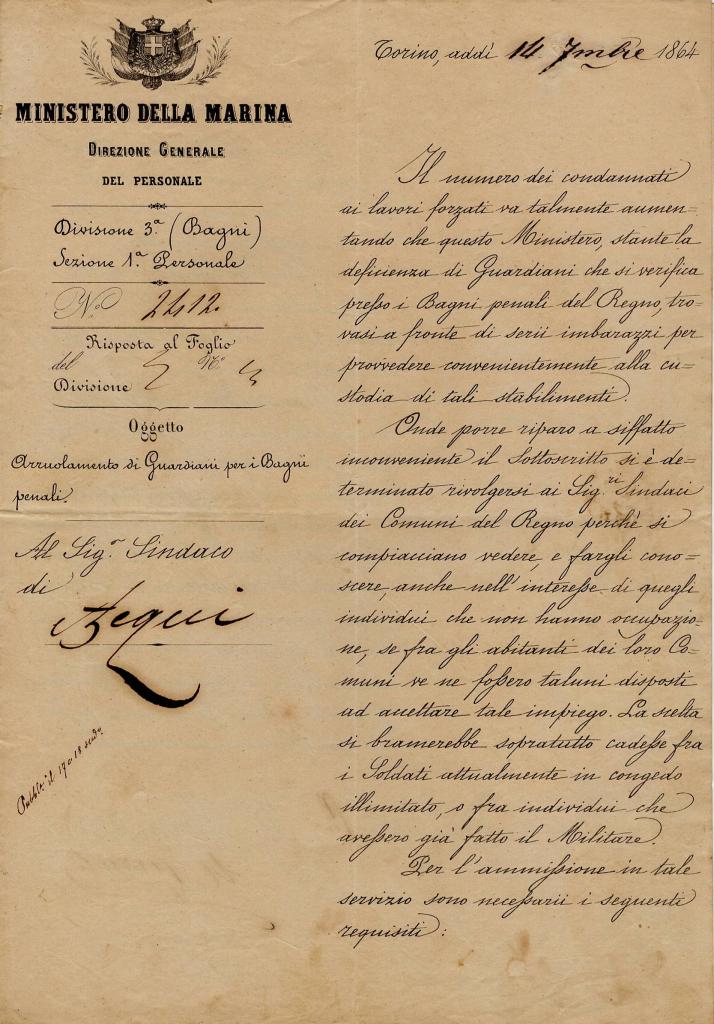 MINISTERO DELLA MARINA
DIREZIONE GENERALE
DEL PERSONALE
Divisione 3.ª (Bagni)
Sezione 1.ª Personale
N.º 2412.
Risposta al Foglio
del N.º
Divisione
Oggetto
Arruolamento di Guardiani per i Bagni
penali.
Al Sig.r Sindaco
di
Acqui
Pubbl. il 17 e 18 
Torino, addì 14 7mbre 1864
Il numero dei condannati
ai lavori forzati va talmente aumen=
tando che questo Ministero, stante la
deficienza di Guardiani che si verifica
presso i Bagni penali del Regno, tro=
vasi a fronte di serii imbarazzi per
provvedere convenientemente alla cu=
stodia di tali stabilimenti.
Onde porre riparo a siffatto
inconveniente il Sottoscritto si è de=
terminato rivolgersi ai Sig.ri Sindaci
dei Comuni del Regno perchè si
compiacciano vedere, e fargli cono=
scere, anche nell'interesse di quegli
individui che non hanno occupazio=
ne, se fra gli abitanti dei loro Co=
muni ve ne fossero taluni disposti
ad accettare tale impiego. La scelta
si bramerebbe sopratutto cadesse fra
i Soldati attualmente in congedo
illimitato, o fra individui che
avessero già fatto il Militare.
Per l'ammissione in tale
servizio sono necessarii i seguenti
requisiti: